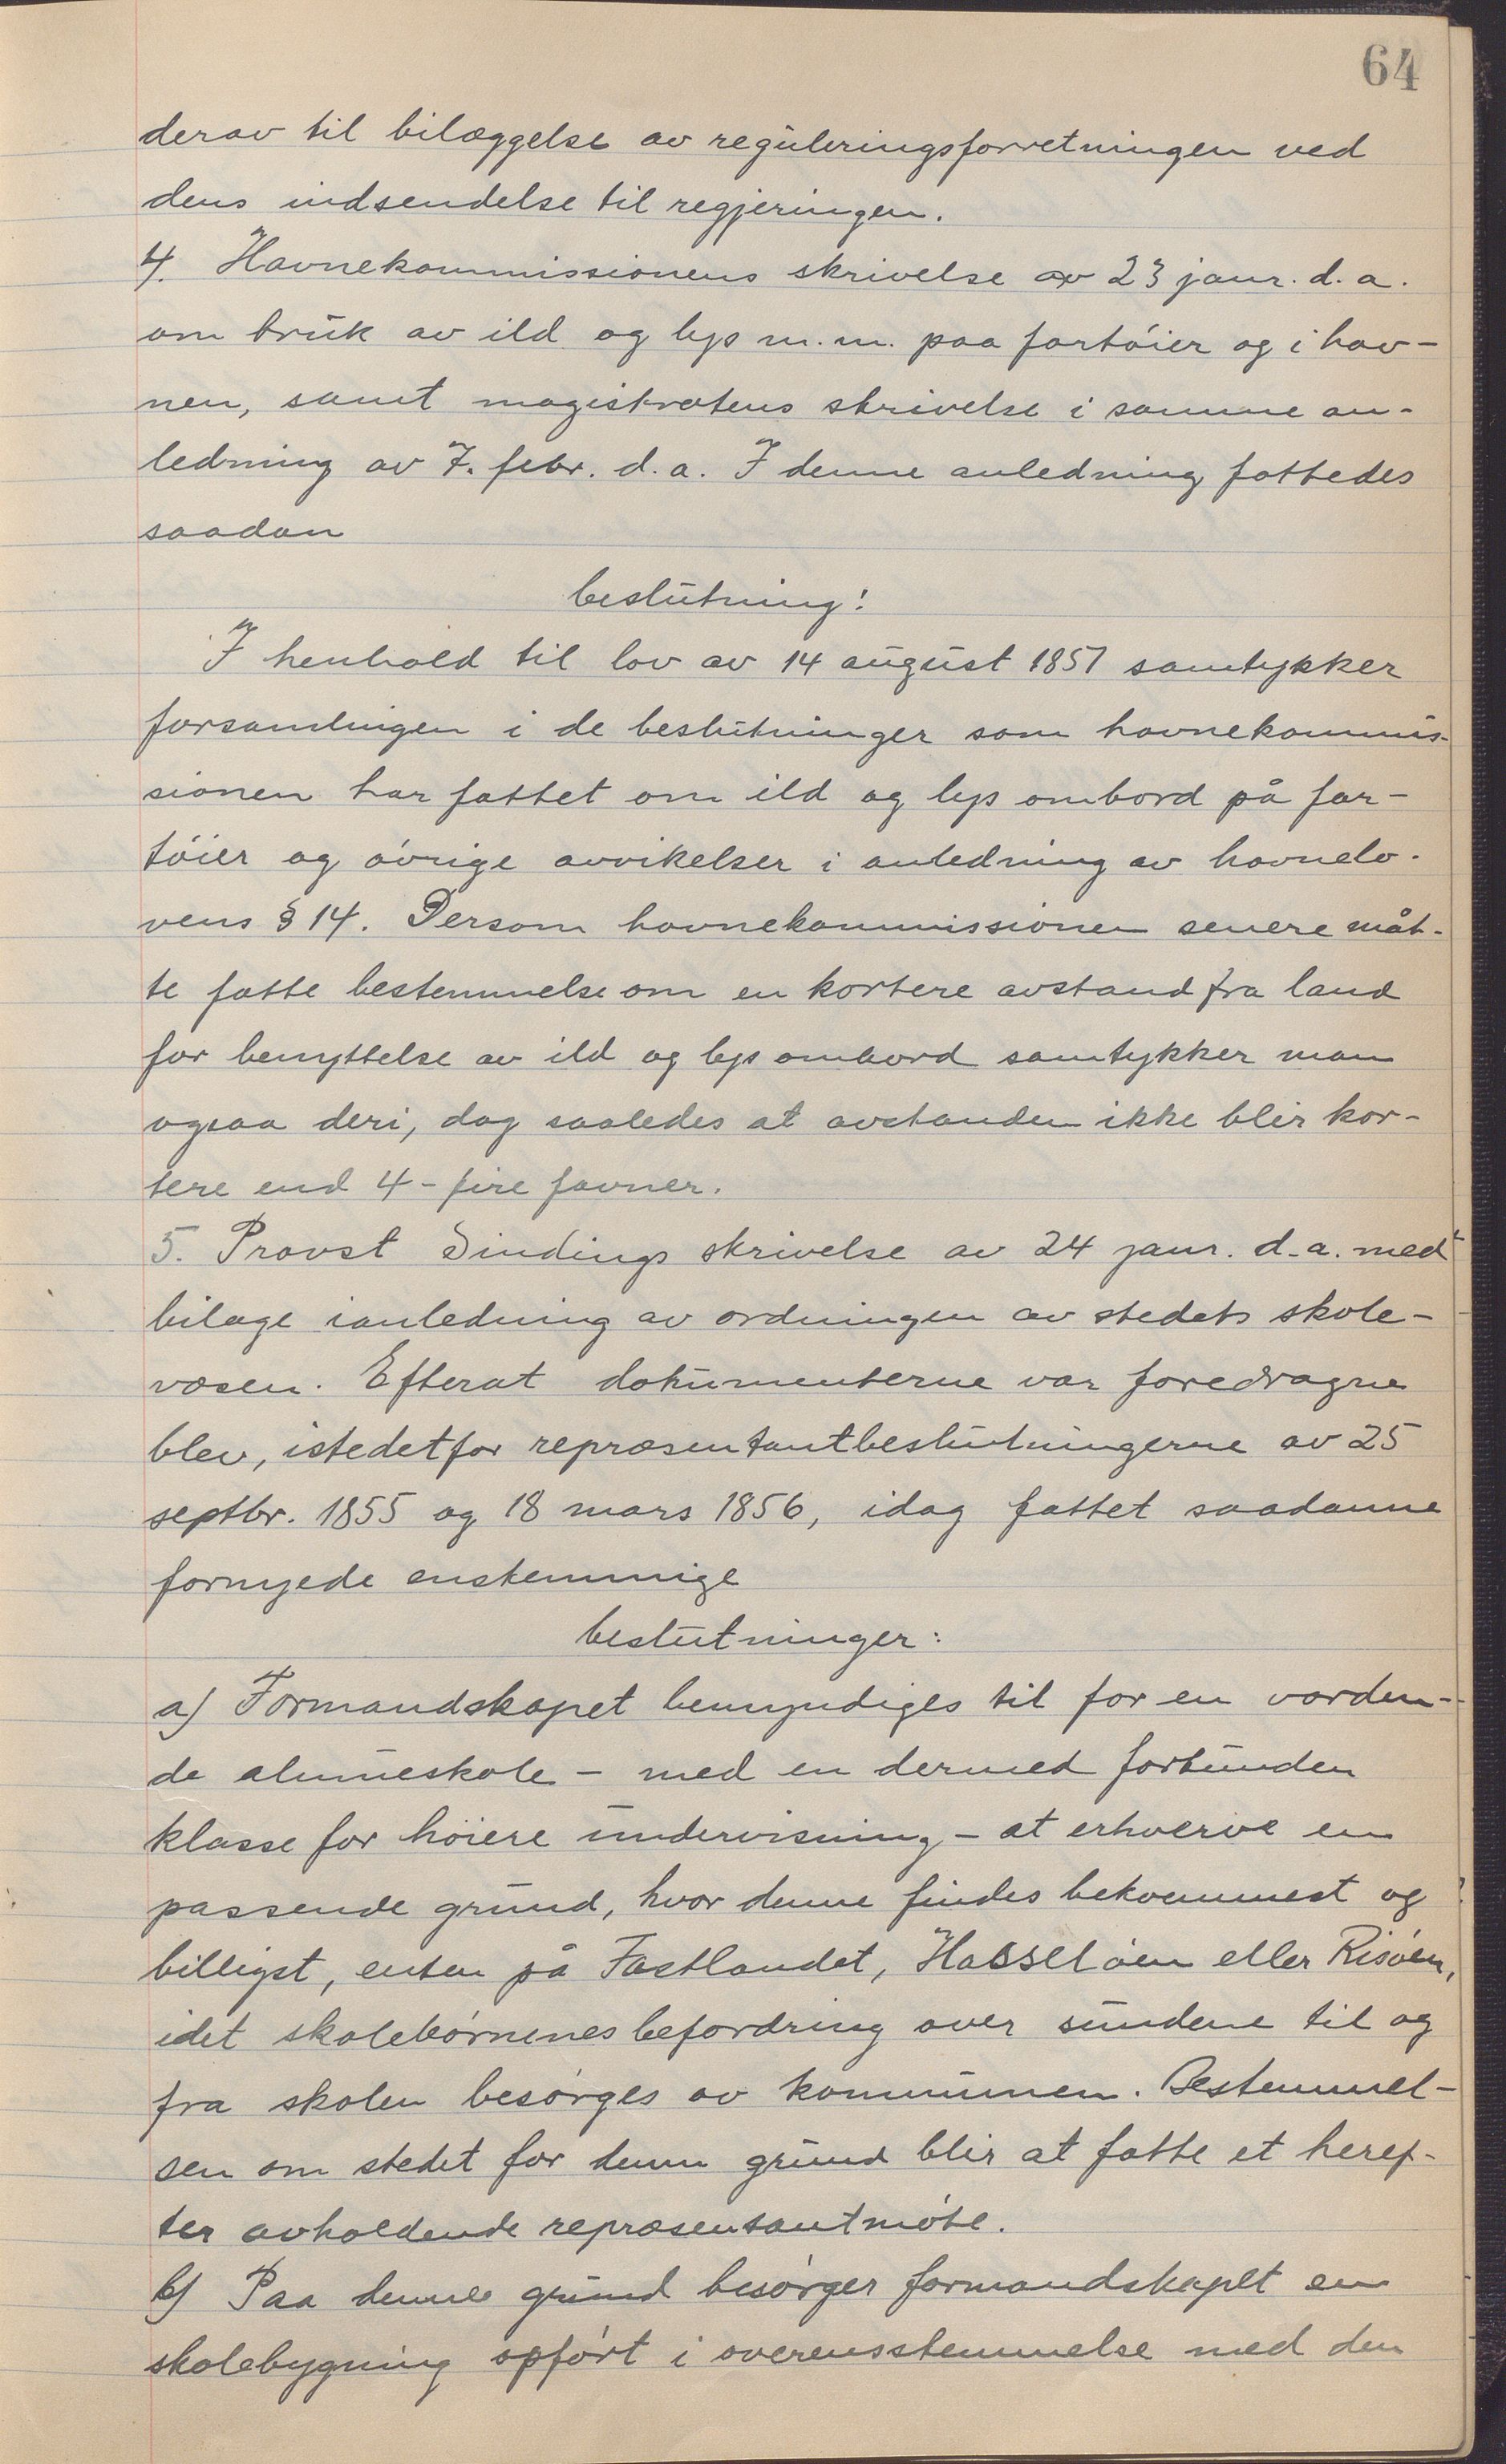 64
derav til bilæggelse av reguleringsforretningen ved
dens indsendelse til regjeringen.
4. Havnekommissionens skrivelse av 23 janr. d. a.
om bruk av ild og lys m.m. paa fartøier og i hav-
nen, samt magistratens skrivelse i samme an-
ledning av 7. febr. d.a. I denne anledning fattedes
saadan
beslutning:
I henhold til lov av 14 august 1851 samtykker
forsamlingen i de beslutninger som havnekommis-
sionen har fattet om ild og lys ombord på far-
tøier og øvrige avvikelser i anledning av havnelo-
vens § 14. Dersom havnekommissionen senere måt-
te fatte bestemmelse om en kortere avstand fra land
for benyttelse av ild og lys ombord samtykker man
ogsaa deri, dog saaledes at avstanden ikke blir kor-
tere end 4 - fire favner.
5. Provst Sindings skrivelse av 24 janr. d.a. med
bilage ianledning av ordningen av stedets skole-
væsen. Efterat dokumenterne var foredragne
blev, istedetfor repræsentantbeslutningerne av 25
septbr. 1855 og 18 mars 1856, idag fattet saadanne
fornyede enstemmige
beslutninger:
a) Formandskapet bemyndiges til for en vorden-
de almueskole - med en dermed forbunden
klasse for høiere undervisning - at erhverve en
passende grund, hvor denne findes bekvemmest og
billigst, enten på Fastlandet, Hasseløen eller Risøen,
idet skolebørnenes befordring over sundene til og
fra skolen besørges av kommunen. Bestemmel-
sen om stedet for denne grund blir at fatte et heref-
ter avholdende repræsentantmøte.
b) Paa denne grund besørger formandskapet en
skolebygning opført i overensstemmelse med den